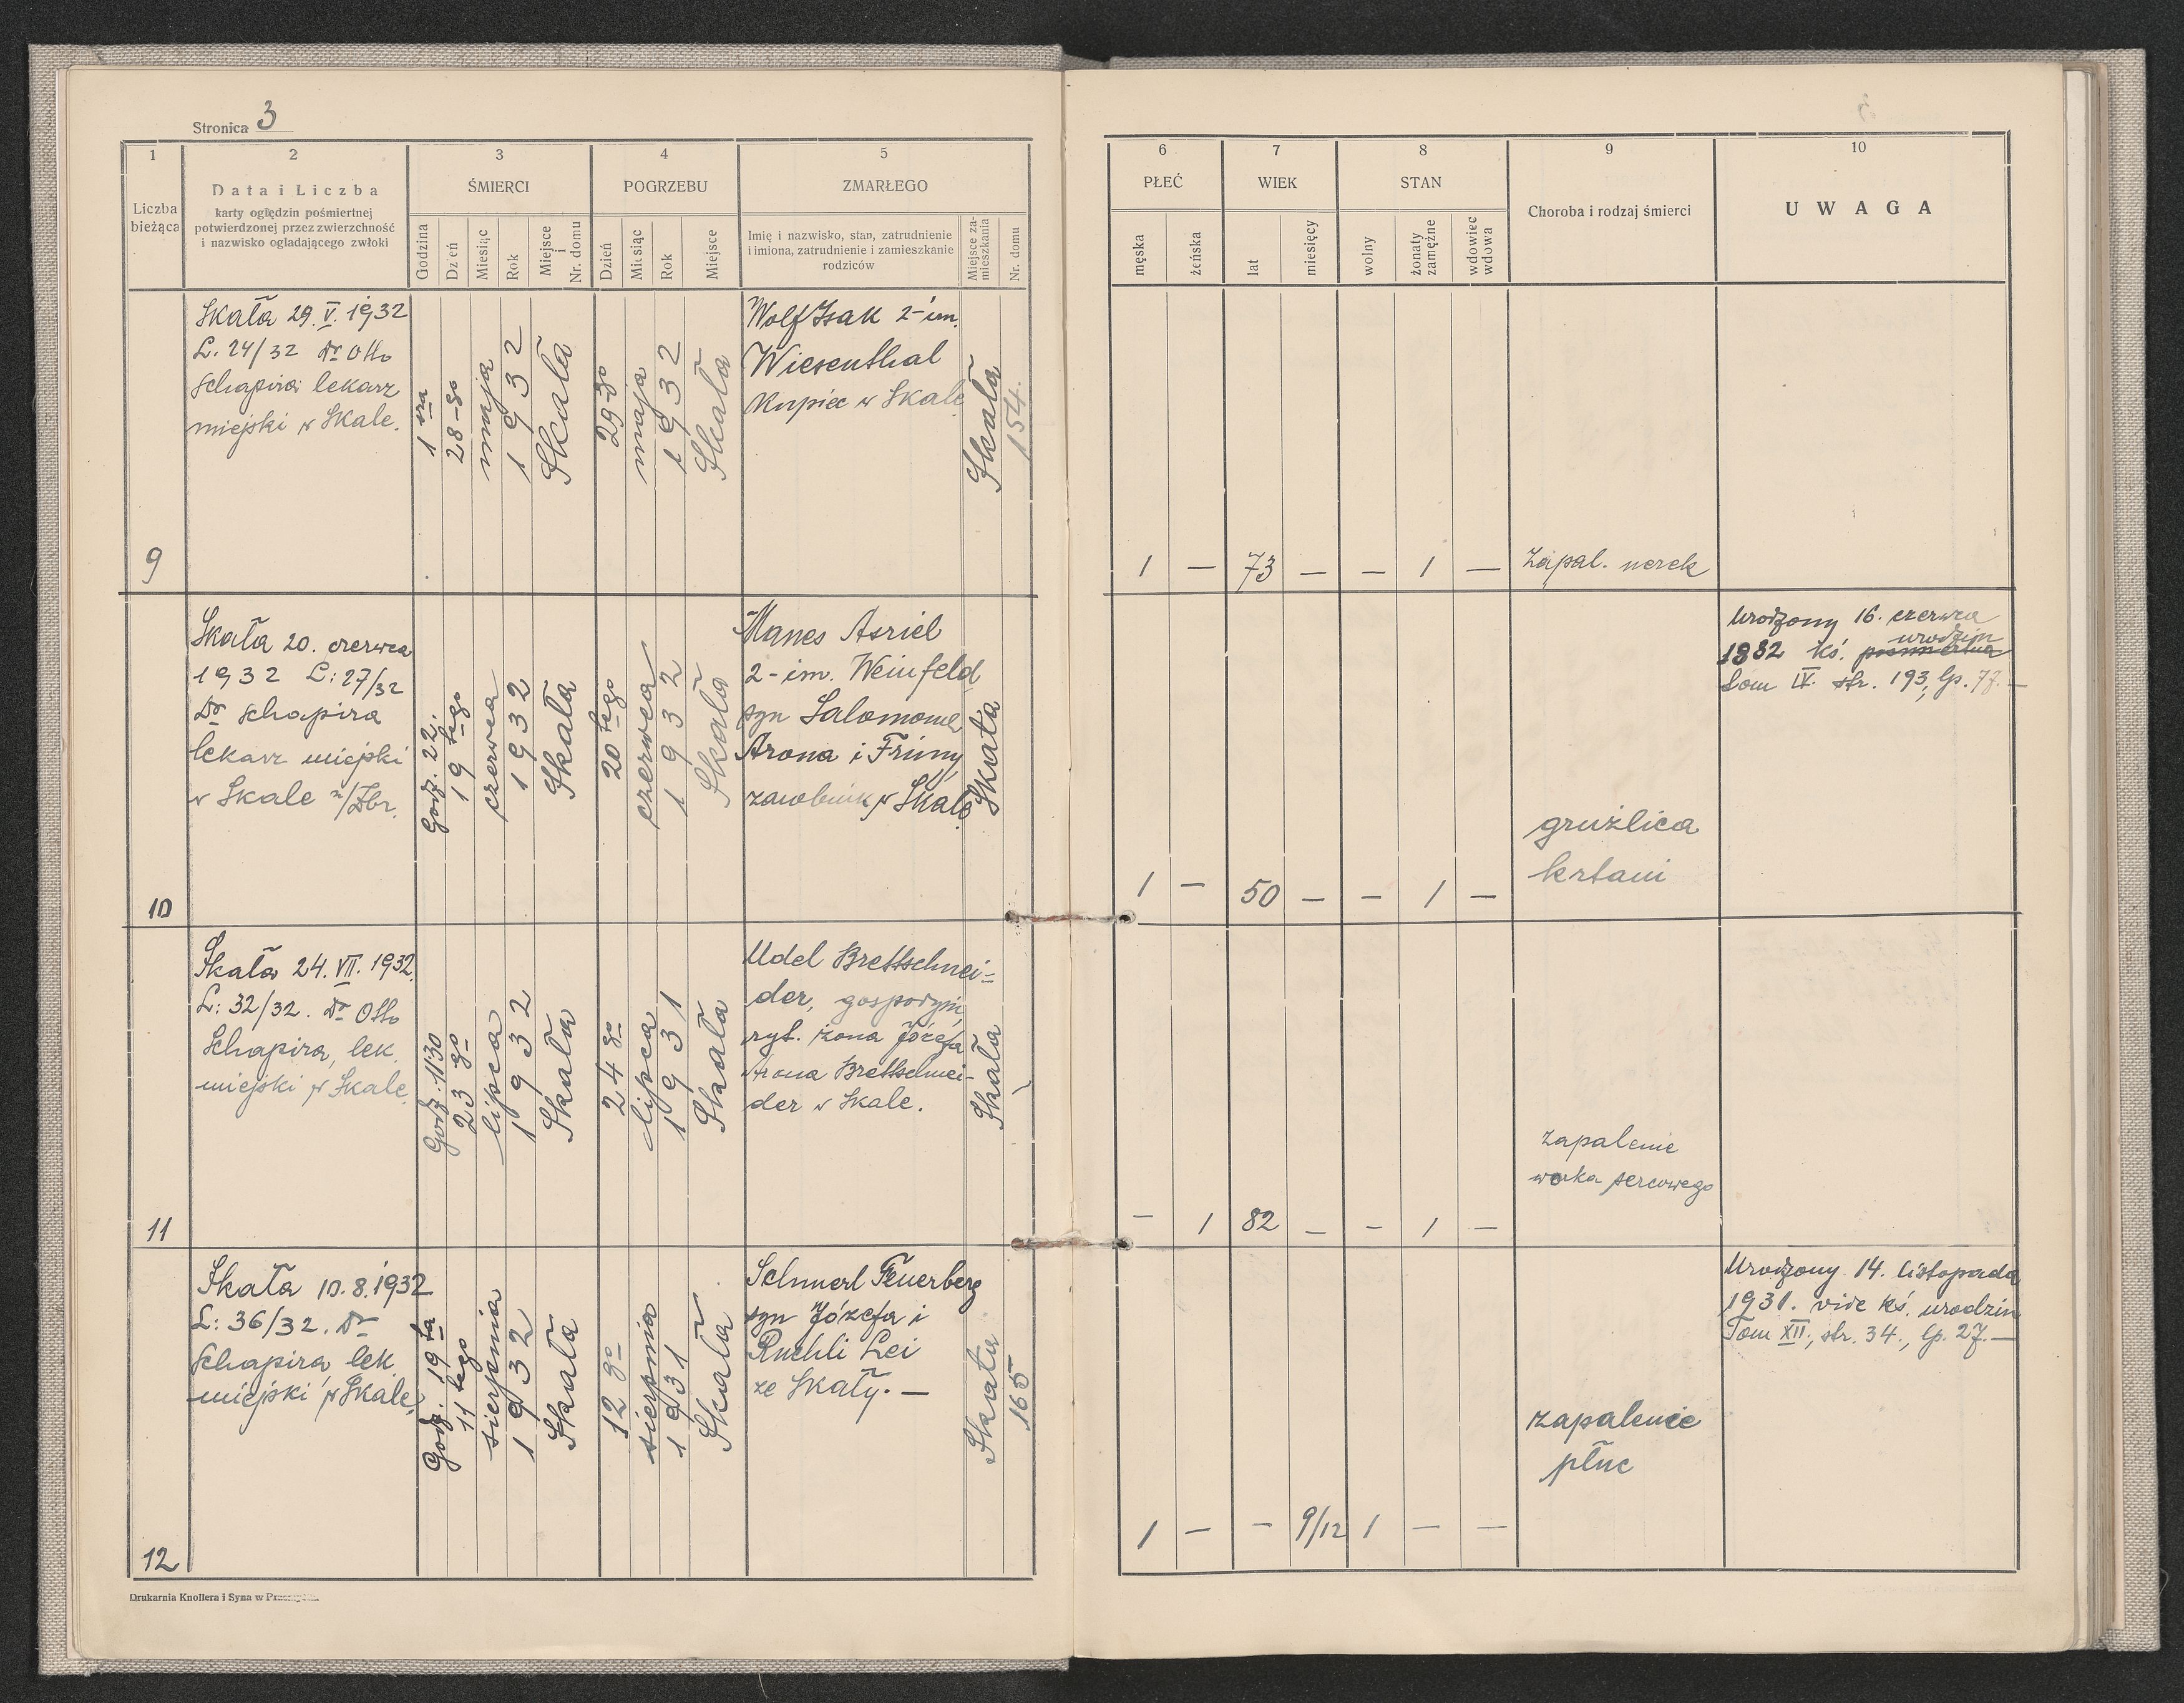 Stronica 3
1
2
3
4
5
Liczba
bieżąca
Data i Liczba
karty oględzin pośmiertnej
potwierdzonej przez zwierzchność
i nazwisko ogladającego zwłoki
ŚMIERCI
Godzina
Dzień
Miesiąc
Rok
Miejsce
i
Nr. domu
POGRZEBU
Dzień
Miesiąc
Rok
Miejsce
ZMARŁEGO
Imię i nazwisko, stan, zatrudnienie
i imiona, zatrudnienie i zamieszkanie
rodziców
Miejsce za-
mieszkania
Nr. domu
6
7
8
9
10
PŁEĆ
męska
żeńska
WIEK
lat
miesięcy
STAN
wolny
żonaty
zamężne
wdowiec
wdowa
Choroba i rodzaj śmierci
UWAGA
9
Skała 29. V. 1932
L. 24/32 Dr Otto
Schapira lekarz
miejski w Skale.
1 sza
28-go
maja
1932
Skała
29-go
maja
1932
Skała
Wolf Isak 2-im.
Wiesenthal
Kupiec w Skale
Skała
154.
1 — 73 — — 1 —
Zapal. nerek
10
Skała 20. czerwca
1932 L: 27/32
Dr Schapira
lekarz miejski
w Skale n/Zbr.
Godz. 22.
19 tego
czerwca
1932
Skała
20 tego
czerwca
1932
Skała
Manes Asriel
2-im. Weinfeld
syn Salomona
Arona i Frimy
zarobnik w Skale
Skała
1 — 50 — — 1 —
gruźlica
krtani
Urodzony 16. czerwca
urodzin
1882 ks. pośmiertna
Tom IV. str. 193, lp. 77. —
11
Skała 24. VII. 1932.
L: 32/32. Dr Otto
Schapira, lek.
miejski w Skale.
Godz. 1130
23 go
lipca
1932
Skała
24 go
lipca
1931
Skała
Udel Brettschnei-
der, gospodyni,
ryt. żona Józefa
Arona Brettschnei-
der w Skale.
Skała
— 1 82 — — 1 —
zapalenie
worka sercowego
12
Skała 10.8.1932
L: 36/32. Dr
Schapira, lek
miejski w Skale.
Godz. 19 ta
11 tego
sierpnia
1932
Skała
12 go
sierpnia
1931
Skała
Schmerl Feuerberg
syn Józefa i
Ruchli Lei
ze Skały. —
Skała
165
1 — — 9/12 1 — —
zapalenie
płuc
Urodzony 14. listopada
1931. vide ks. urodzin
Tom XII., str. 34., lp. 27. —
Drukarnia Knollera i Syna w